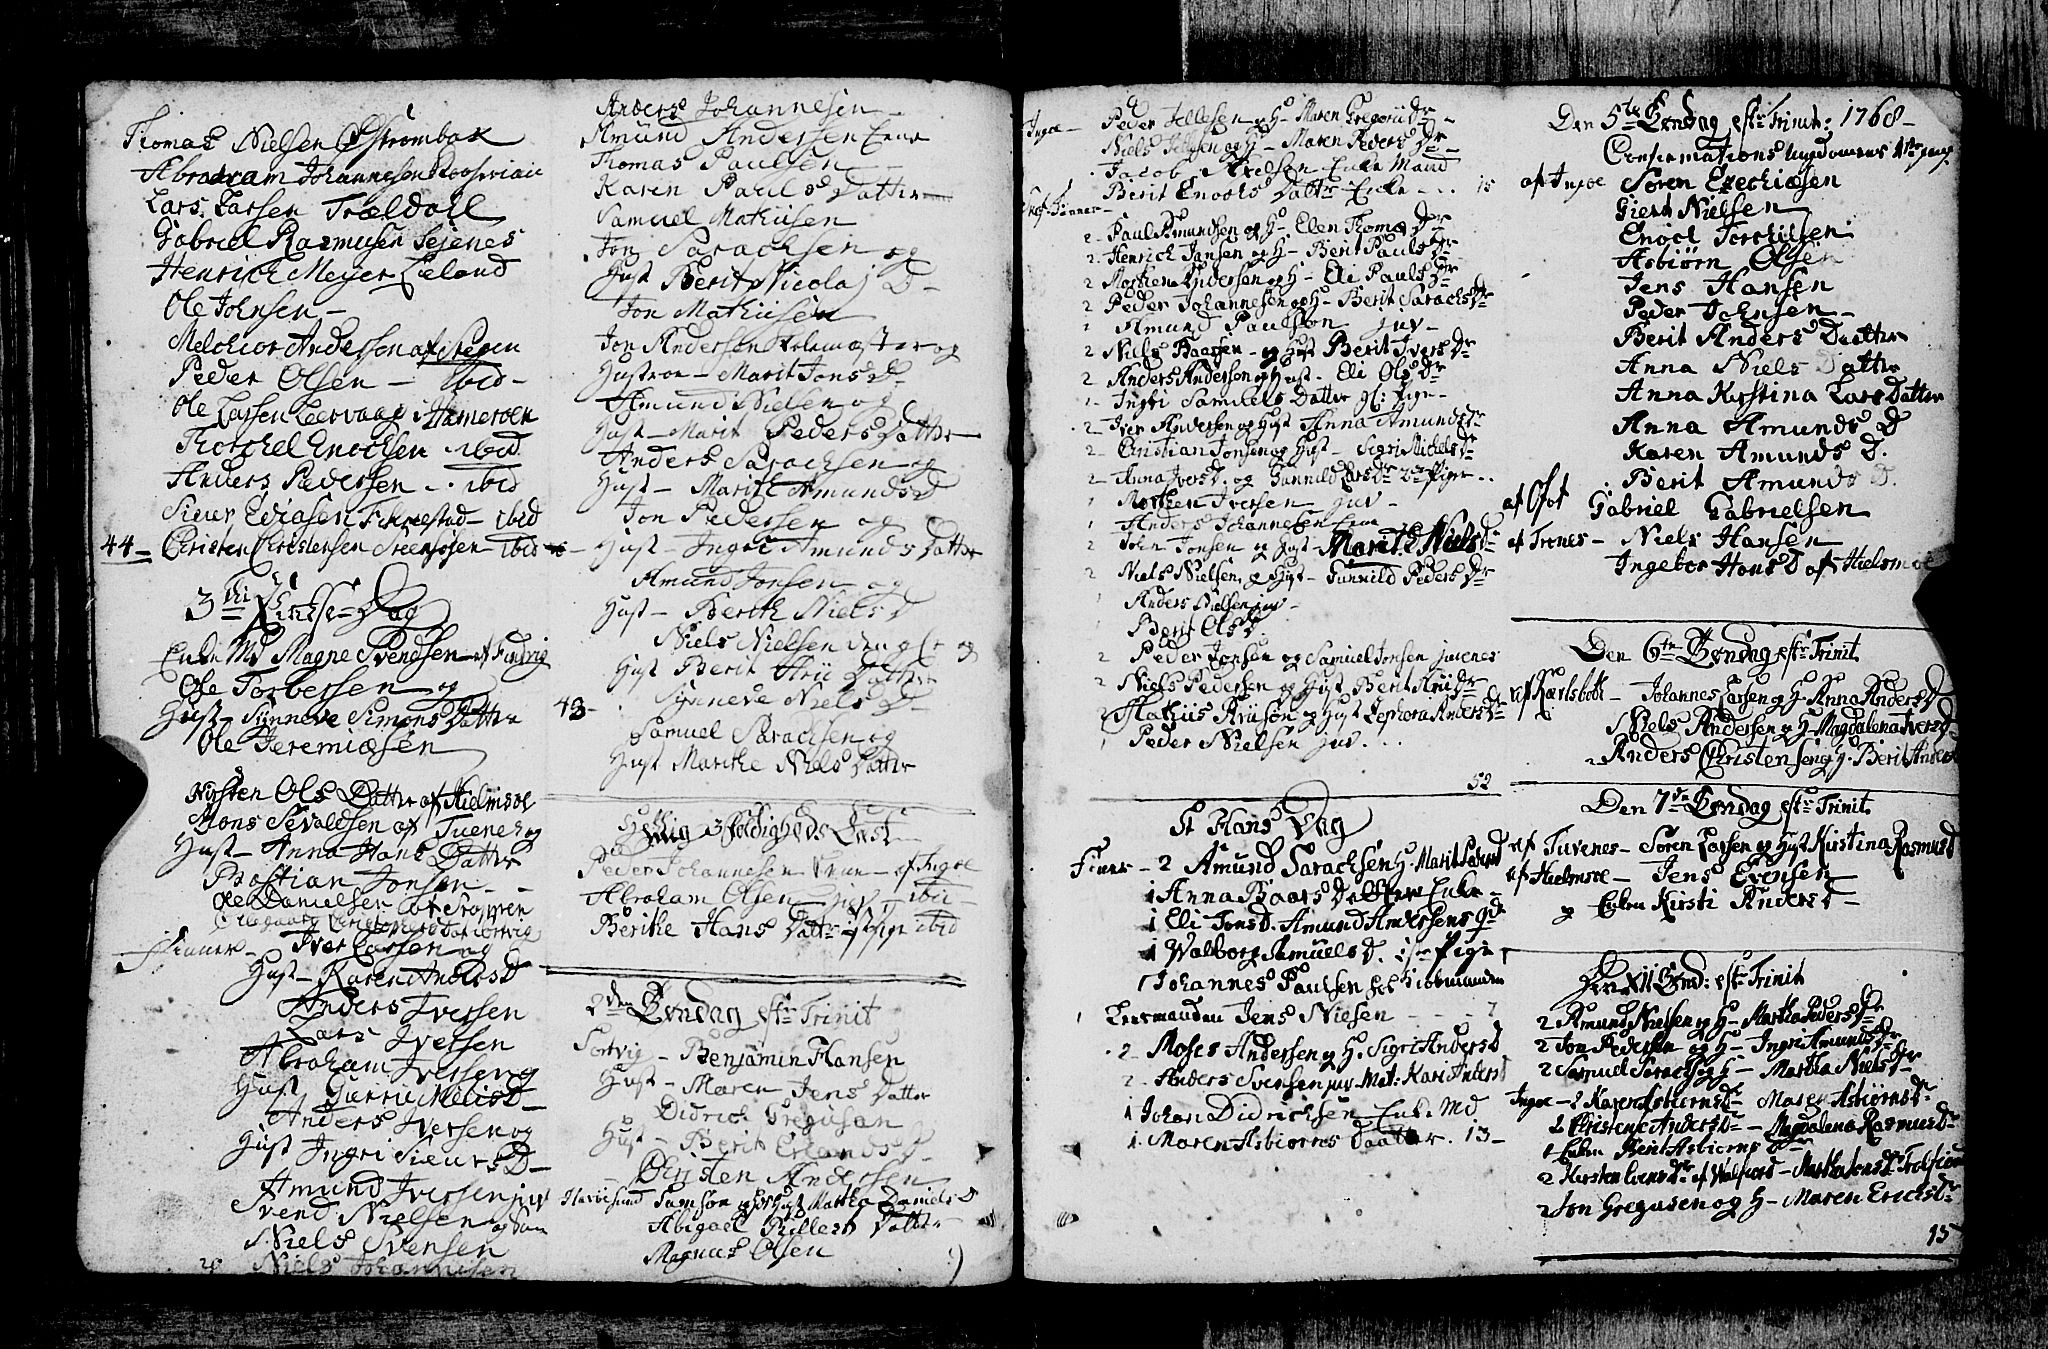 Thomas Nielsen Strømbak
Abraham Johannesen
Lars Larsen Trældall
Gabriel Rasmusen Sejenes
Henrich Meyer Lieland
Ole Johnsen -
Melchior Anderson af Stegen
Peder Olsen - ibid -
Ole Larsen Leervaag i Hameroen
Thorchel Enochsen ibid
Anders Pedersen - ibid
Siver ibid
44 - Christen Christensen ibid
3die Pintse-Dag
Enke Md Magne Svendsen - af
Ole Torbersen og
Hust - Sÿnneve Simons Datter
Ole Jeremiæsen
Kirsten Ols Datter af Hielmsoe
Mons Sevaldsen af Tuenes og
Hust - Anna Hans Datter
Bastian Jonsen - -
Ole Danielsen af
Finner - Iver Larsen og
Hust - Karen Anders D
Anders Iversen
Lars Iversen
Abraham Iversen og
Hust Gurru Nielis D -
Anders Iversen og
Hust Ingri Siuers D -
Amund Iversen juv
Svend Nielsen og
Niels Svensen
Niels Johannesen
Anders Johannesen -
Amund Andersen
Thomas Paulsen -
Karen Pauls Datter
Samuel Mathisen
Jon Sarachsen og
Hust Berit Nicolaj D -
Jon Mathisen
Jon Andersen Skolemaster og
Hustroe - Marit Jons D -
Amund Nielsen og
Hust - Marit Peders Datter
Anders Sarachsen og
Hust - Marith Amunds D
Jon Pedersen og
Hust - Ingri Amunds Datter
Amund Jonsen og
Hust - Berith Niels D
Niels Nielsen den gl. og
Hust Berit Datter
43 - Sÿnneve Niels D -
Samuel Sarachsen og
Hust Marithe Niels Datter
Hellig 3foldigheds Fest
Peder Johannesen - af Ingoe
Abraham Olsen juv - ibid
Berithe Hans Datter Pige ibid
2den Søndag eftr Trinit
Sortvig - Benjamin Hansen
Hust - Maren Jens Datter
Didrich Gregusen
Hust - Berit Erlands D -
Christen Andersen
Havøesund Samson og Hust Martha Daniels D
Abigael Datter
Magnus Olsen
Ingoe - Peder Jellesen og H - Maren Gregorii Dr -
Niels Jellesen og H - Maren Peders Dr -
Jacob Nielsen Enke Mand
Berit Enochs Datter Enke - - 15
Finner -
2 - Paul Amundsen og H - Elen Thomæ Dr
2 - Henrich Jansen og H - Berit Pauls Dr -
2 Morten Andersen og H - Eli Pauls Dr
2 Peder Johannesen og H - Berit Sarachs Dr
1 Amund Paulson juv -
2 Niels Baarsen - og Hust Berit Ivers Dr
2 Anders Andersen og Hust - Eli Ols Dr
1 - Ingri Samuels Datter gl: Pige -
2 Iver Andersen og Hust Anna Amunds Dr
2 - Christian Jonsen og Hust - Sigri Michels Dr
2 Anna Ivers D. og Gunnild Lars Dr 2de Piger
1 Morten Iversen juv -
1 Anders Johannesen
2 John Jonsen og Hust - Marith Niels Dr
2 Niels Nielsen og Hust - Gunnild Peders Dr
1 Anders Nielsen juv -
1 Berit Ols D.
2 Peder Jonsen og Samuel Jonsen juvenes
2 Niels Pedersen og Hust Berit Dr
2 Mathis og Hust Zephora Anders Dr
1 Peder Nielsen juv. . .
52
St Hans Dag
Finner - 2 Amund Sarachsen H - Marit
1 Anna Baars Datter Enke -
1 Eli Jons D. Amund Andersens
1 Walborg Samuels D. Pige
1 Johannes Paulsen
1 Leermanden Jens Nielsen - - - 7
2 - Moses Andersen og H. Sigri Anders D
2 - Anders Svensen juv Kari Anders D
1 Johan Didrichsen Enke Md
1 - Maren Asbiørns Daatter. 13 -
Den 5te Søndag eftr Trinit: 1768 -
Confirmations Ungdomens 1ste gang
af Ingoe Søren Ezechiæsen
Giert Nielsen
Enoch Torchilsen
Asbiørn Olsen
Jens Hansen
Peder Johnsen -
Berit Anders Datter
Anna Niels Datter
Anna Kirstina Lars Datter
Anna Amunds D
Karen Amunds D.
Berit Amunds D.
af Ofot Gabriel Gabrielsen
af Trones - Niels Hansen
Ingebor Hans D af Hielmsoe
Den 6te Søndag eftr Trinit.
af Karlsboth - Johannes Larsen og H - Anna Anders D
Niels Andersen og H - Magdalena Ivers D -
Anders Christensen og H. Berit Anders
Den 7de Søndag eftr Trinit.
af Tuvenes - Søren Larsen og Hust Kirstina Rasmus D
af Hielmsoe - Jens Evensen
og Enken Kirsti Anders D -
Den XII Sønd: eftr Trinit
2 Amund Nielsen og H - Martha Peders Dr
2 Jon Pedersen og H - Ingri Amunds Dr
2 Samuel Sarachs og H - Martha Niels Dr -
Ingoe - 2 Karen Asbiørns Dr - Maren Asbiørns Dr
2 Christene Anders Dr - Magdalena Rasmus Dr
1 Enken Berit Asbiørns Dr
2 Kirsten Evens Dr af - Martha Jons Dr
2 Jon Gregusen og H - Maren Erichs Dr
15